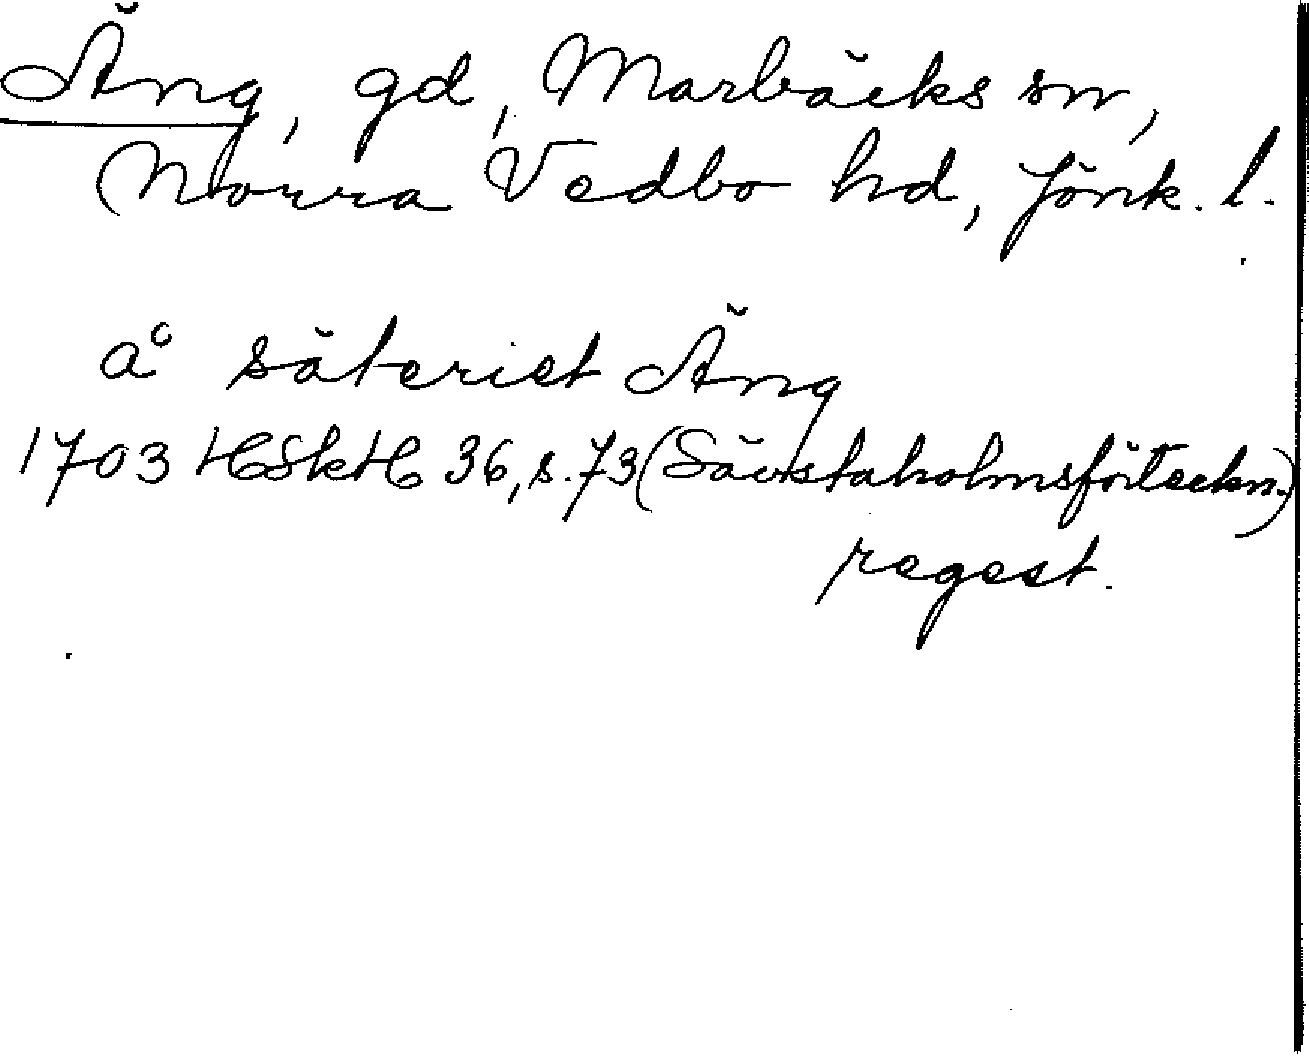 Äng, gd, Marbäcks sn,
Norra Vedbo hd, Jönk. l.
å säteriet Äng
1703 HSkH 36, s. 73 (Sävstaholmsförteckn.)
regest.